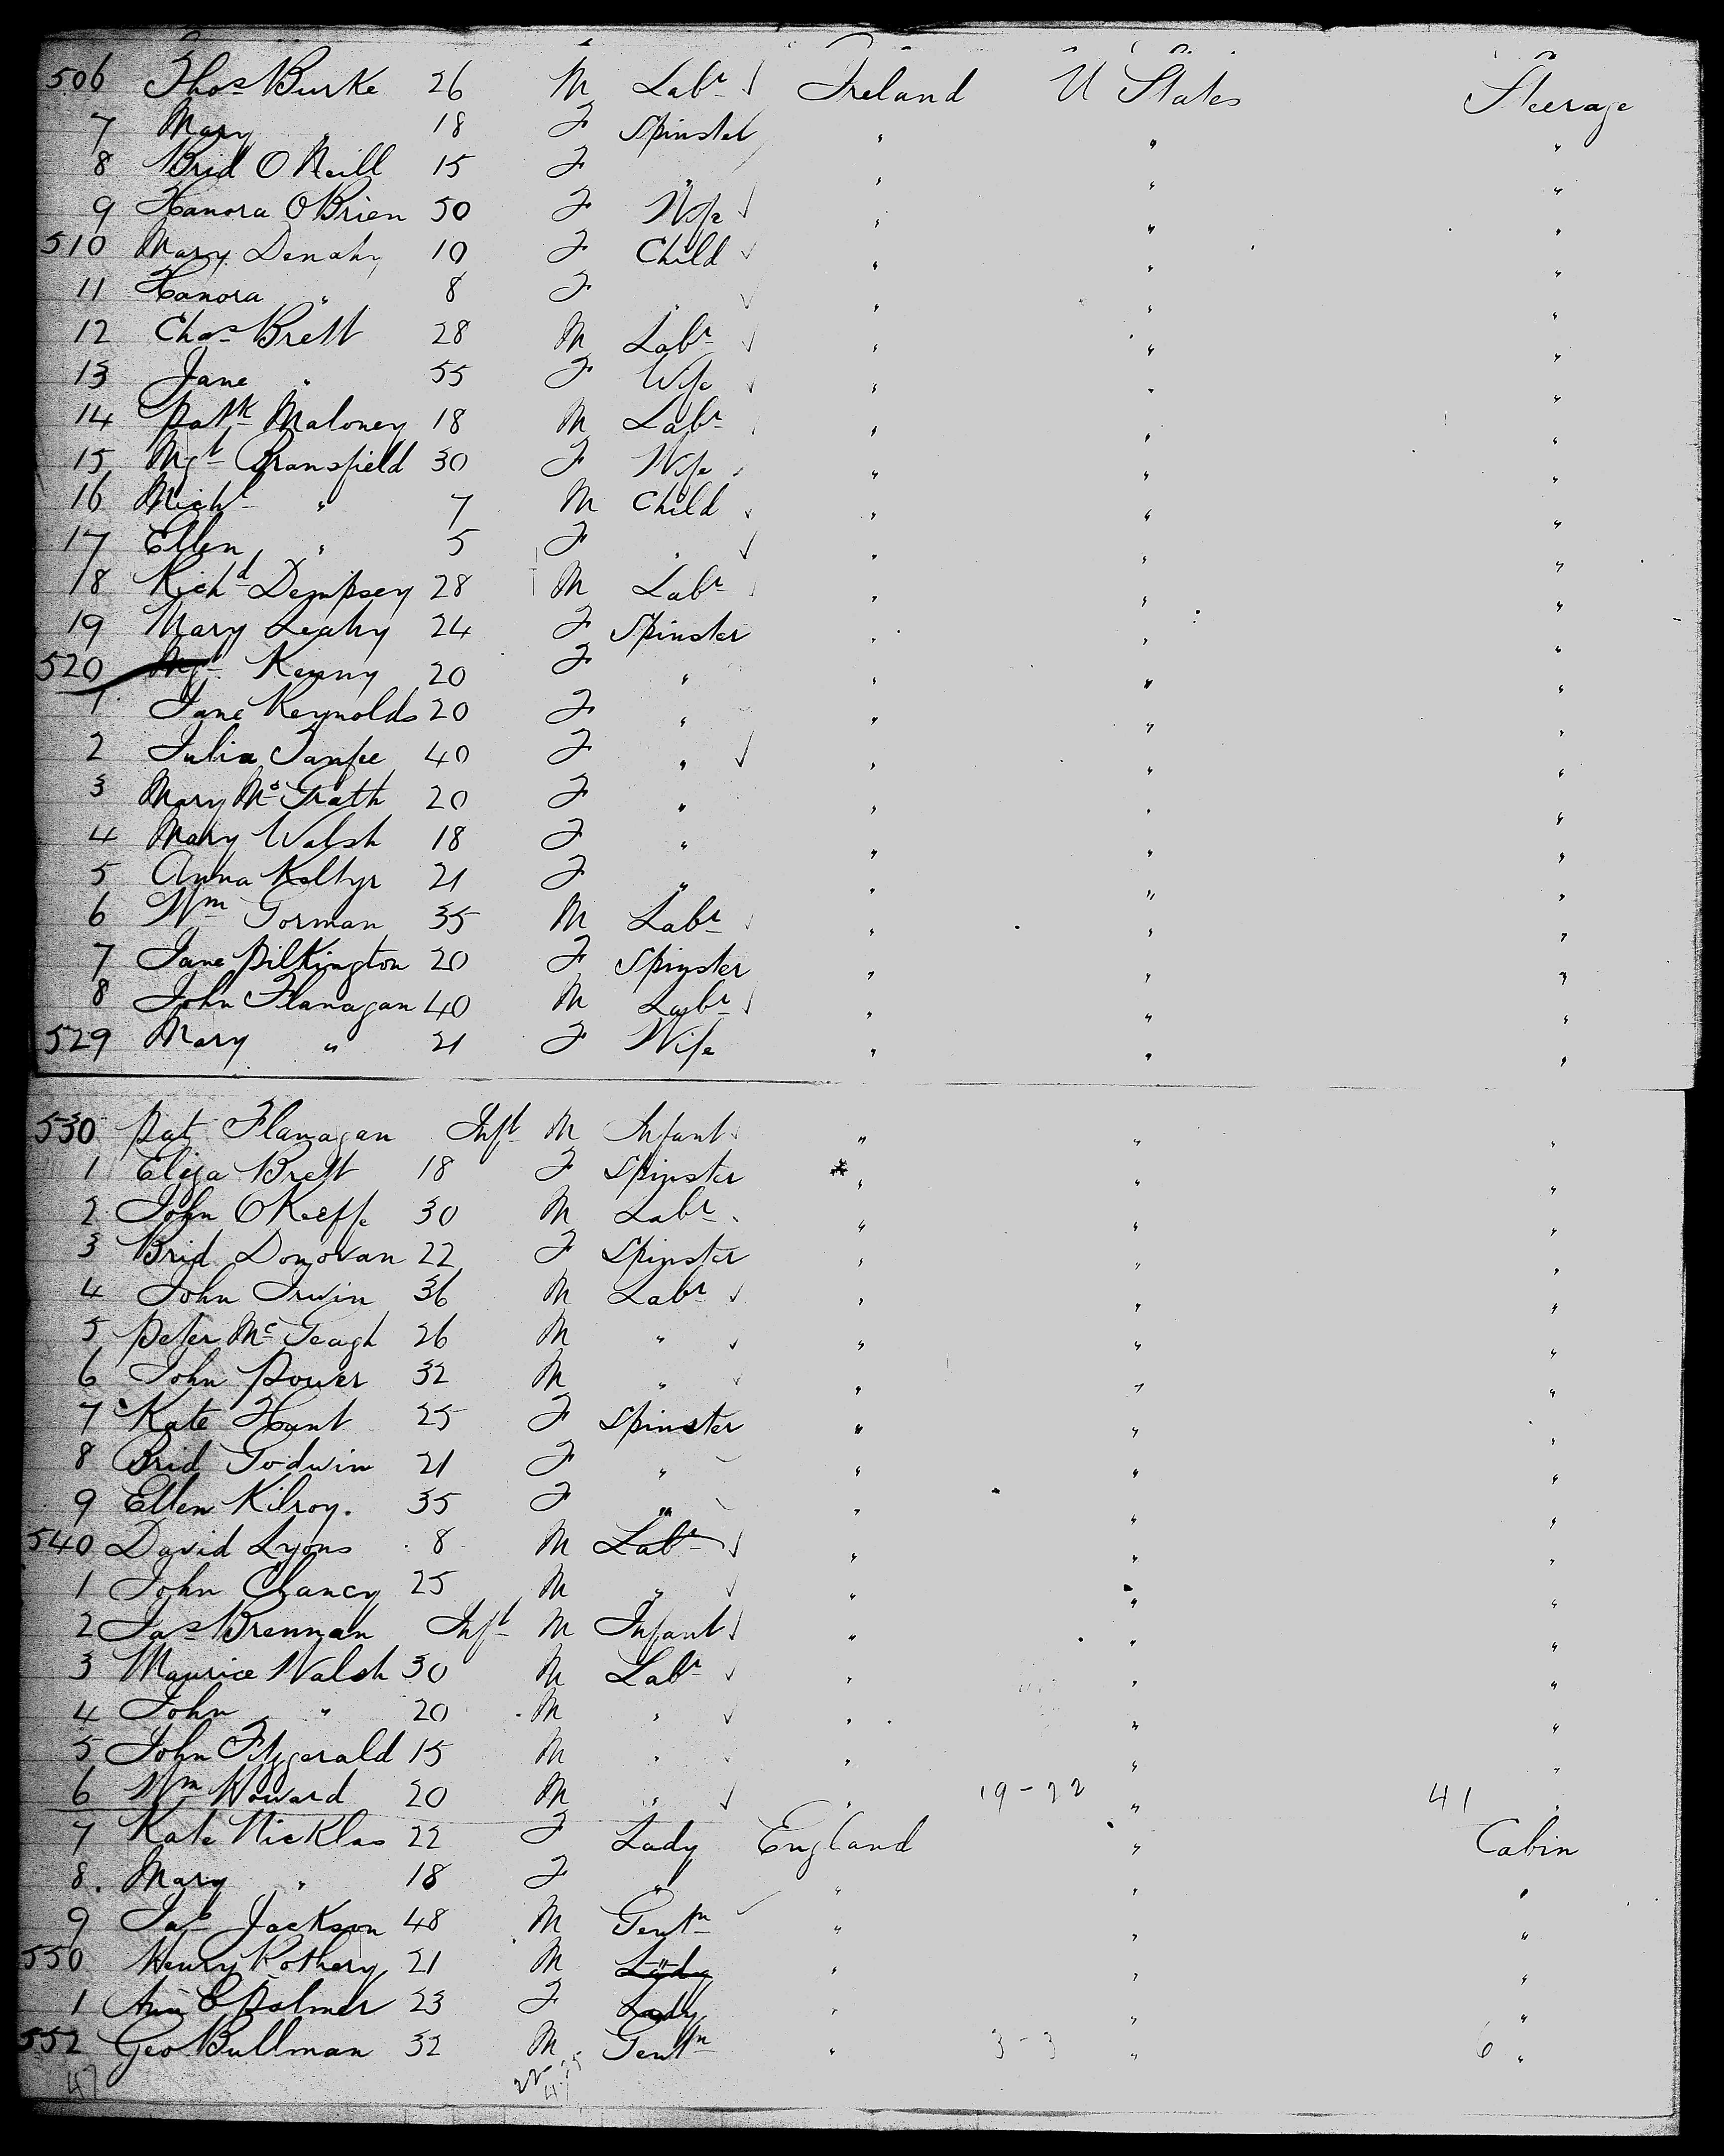 506 Thos Burke 26 M Labr ✓ Ireland U States Steerage
7 Mary " 18 F Spinster " " "
8 Brid O Neill 15 F " " " "
9 Hanora OBrien 50 F Wife ✓ " " "
510 Mary Denahy 10 F Child ✓ " " "
11 Hanora " 8 F " ✓ " " "
12 Chas Brett 28 M Labr ✓ " " "
13 Jane " 55 F Wife ✓ " " "
14 Patk Maloney 18 M Labr " " "
15 Mgt Bransfield 30 F Wife " " "
16 Michl " 7 M Child ✓ " " "
17 Ellen " 5 F " ✓ " " "
18 Richd Dempsey 28 M Labr " " "
19 Mary Leahy 24 F Spinster " " "
520 Mgt Kenny 20 F " " " "
1 Jane Reynolds 20 F " " " "
2 Julia 40 F " ✓ " " "
3 Mary McGrath 20 F " " " "
4 Mary Walsh 18 F " " " "
5 Anna 21 F " " " "
6 Wm Gorman 35 M Labr ✓ " " "
7 Jane Pilkington 20 F Spinster " " "
8 John Flanagan 40 M Labr ✓ " " "
529 Mary " 21 F Wife " " "
530 Pat Flanagan Inft M Infant ✓ " " "
1 Eliza Brett 18 F Spinster * " " "
2 John OKeeffe 30 M Labr " " "
3 Brid Donovan 22 F Spinster " " "
4 John Irwin 36 M Labr ✓ " " "
5 Peter Mc Geagh 26 M " ✓ " " "
6 John Power 32 M " ✓ " " "
7 Kate Hunt 25 F Spinster " " "
8 Brid Godwin 21 F " " " "
9 Ellen Kilroy. 35 F " " " "
540 David Lyons 8 M Labr ✓ " " "
1 John Clancy 25 M " ✓ " " "
2 Jas Brennan Inft M Infant ✓ " " "
3 Maurice Walsh 30 M Labr ✓ " " "
4 John " 20 M " ✓ " " "
5 John Fitzgerald 15 M " " " "
6 Wm Howard 20 M " ✓ " 19-22 " 41 "
7 Kate Nicklas 22 F Lady England " Cabin
8. Mary " 18 F " " " "
9 Jas Jackson 48 M Gentn ✓ " " "
550 Henry Rothery 21 M Lady " " " "
1 Ann E Palmer 23 F Lady " " "
552 Geo Bullman 32 M Gentn " 3-3 " 6 "
47